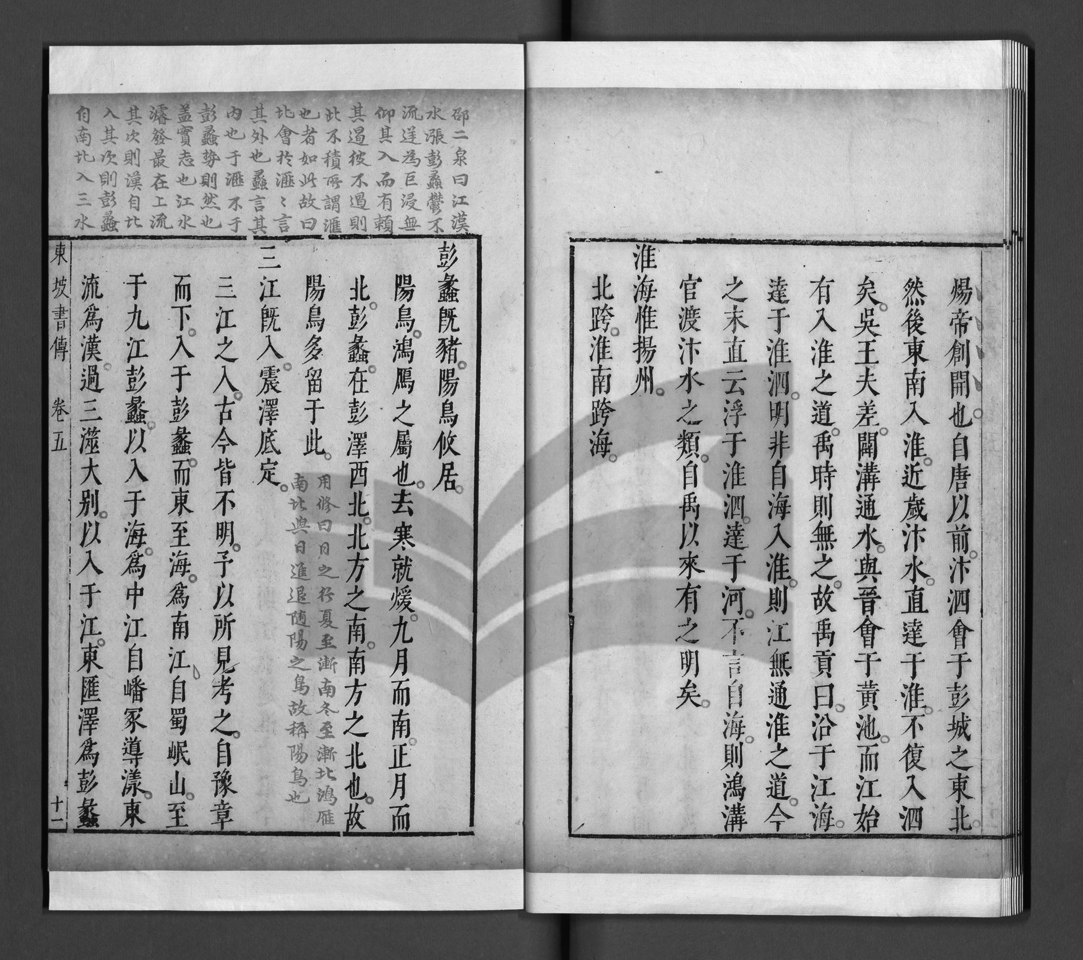 煬帝創開也自唐以前汴泗會于彭城之東北
然後東南入淮近歲汴水直達于淮不復入泗
矣吳王夫差闕溝通水與晉會于黃池而江始
有入淮之道禹時則無之故禹貢曰沿于江海
達于淮泗明非自海入淮則江無通淮之道今
之末直云浮于淮泗達于河不言自海則鴻溝
官渡汴水之類自禹以來有之明矣
淮海惟揚州
北跨淮南跨海
邵二泉曰江漢
水漲彭蠡鬱不
流逆為巨浸無
仰其入而有賴
其遏彼不遏則
此不積所謂滙
也者如此故曰
北會於滙滙言
其外也蠡言其
内也于滙不于
彭蠡勢則然也
蓋實志也江水
濬發最在上流
其次則漢自北
入其次則彭蠡
自南北入三水
彭蠡旣豬陽鳥攸居
陽鳥鴻鴈之屬也去寒就煖九月而南正月而
北彭蠡在彭澤西北北方之南南方之北也故
陽鳥多留于此
用修曰日之行夏至漸南冬至漸北鴻雁
南北與日進退随陽之鳥故稱陽鳥也
三江旣入震澤底定
三江之入古今皆不明予以所見考之自豫章
而下入于彭蠡而東至海為南江自蜀岷山至
于九江彭蠡以入于海為中江自嶓冢導漾東
流為漢過三澨大别以入于江東匯澤為彭蠡
東坡書傳 卷五 十二